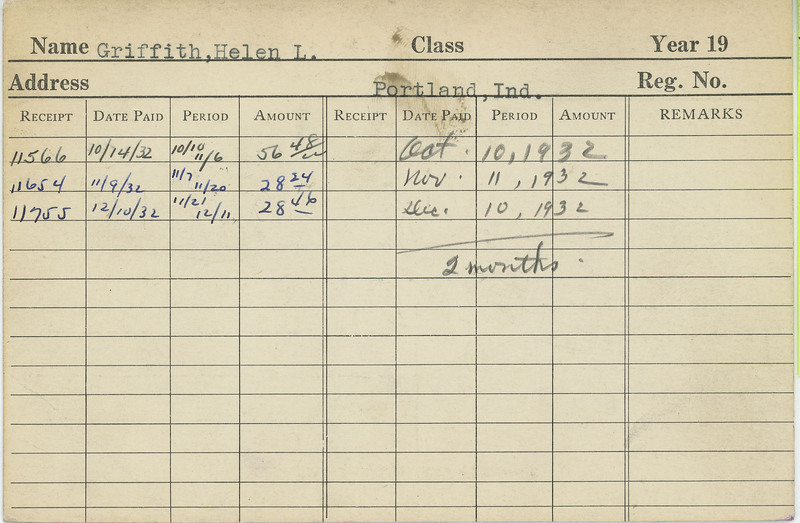 Name Griffith,Helen L. Class Year 19
Address Portland,Ind. Reg. No.
RECEIPT DATE PAID PERIOD AMOUNT RECEIPT DATE PAID PERIOD AMOUNT REMARKS
11566 10/14/32 10/10 11/6 56 48 Oct. 10, 1932
11654 11/9/32 11/7 11/20 28 24 Nov. 11, 1932
11755 12/10/32 11/21 12/11 28 46 Dec. 10, 1932
2 months.